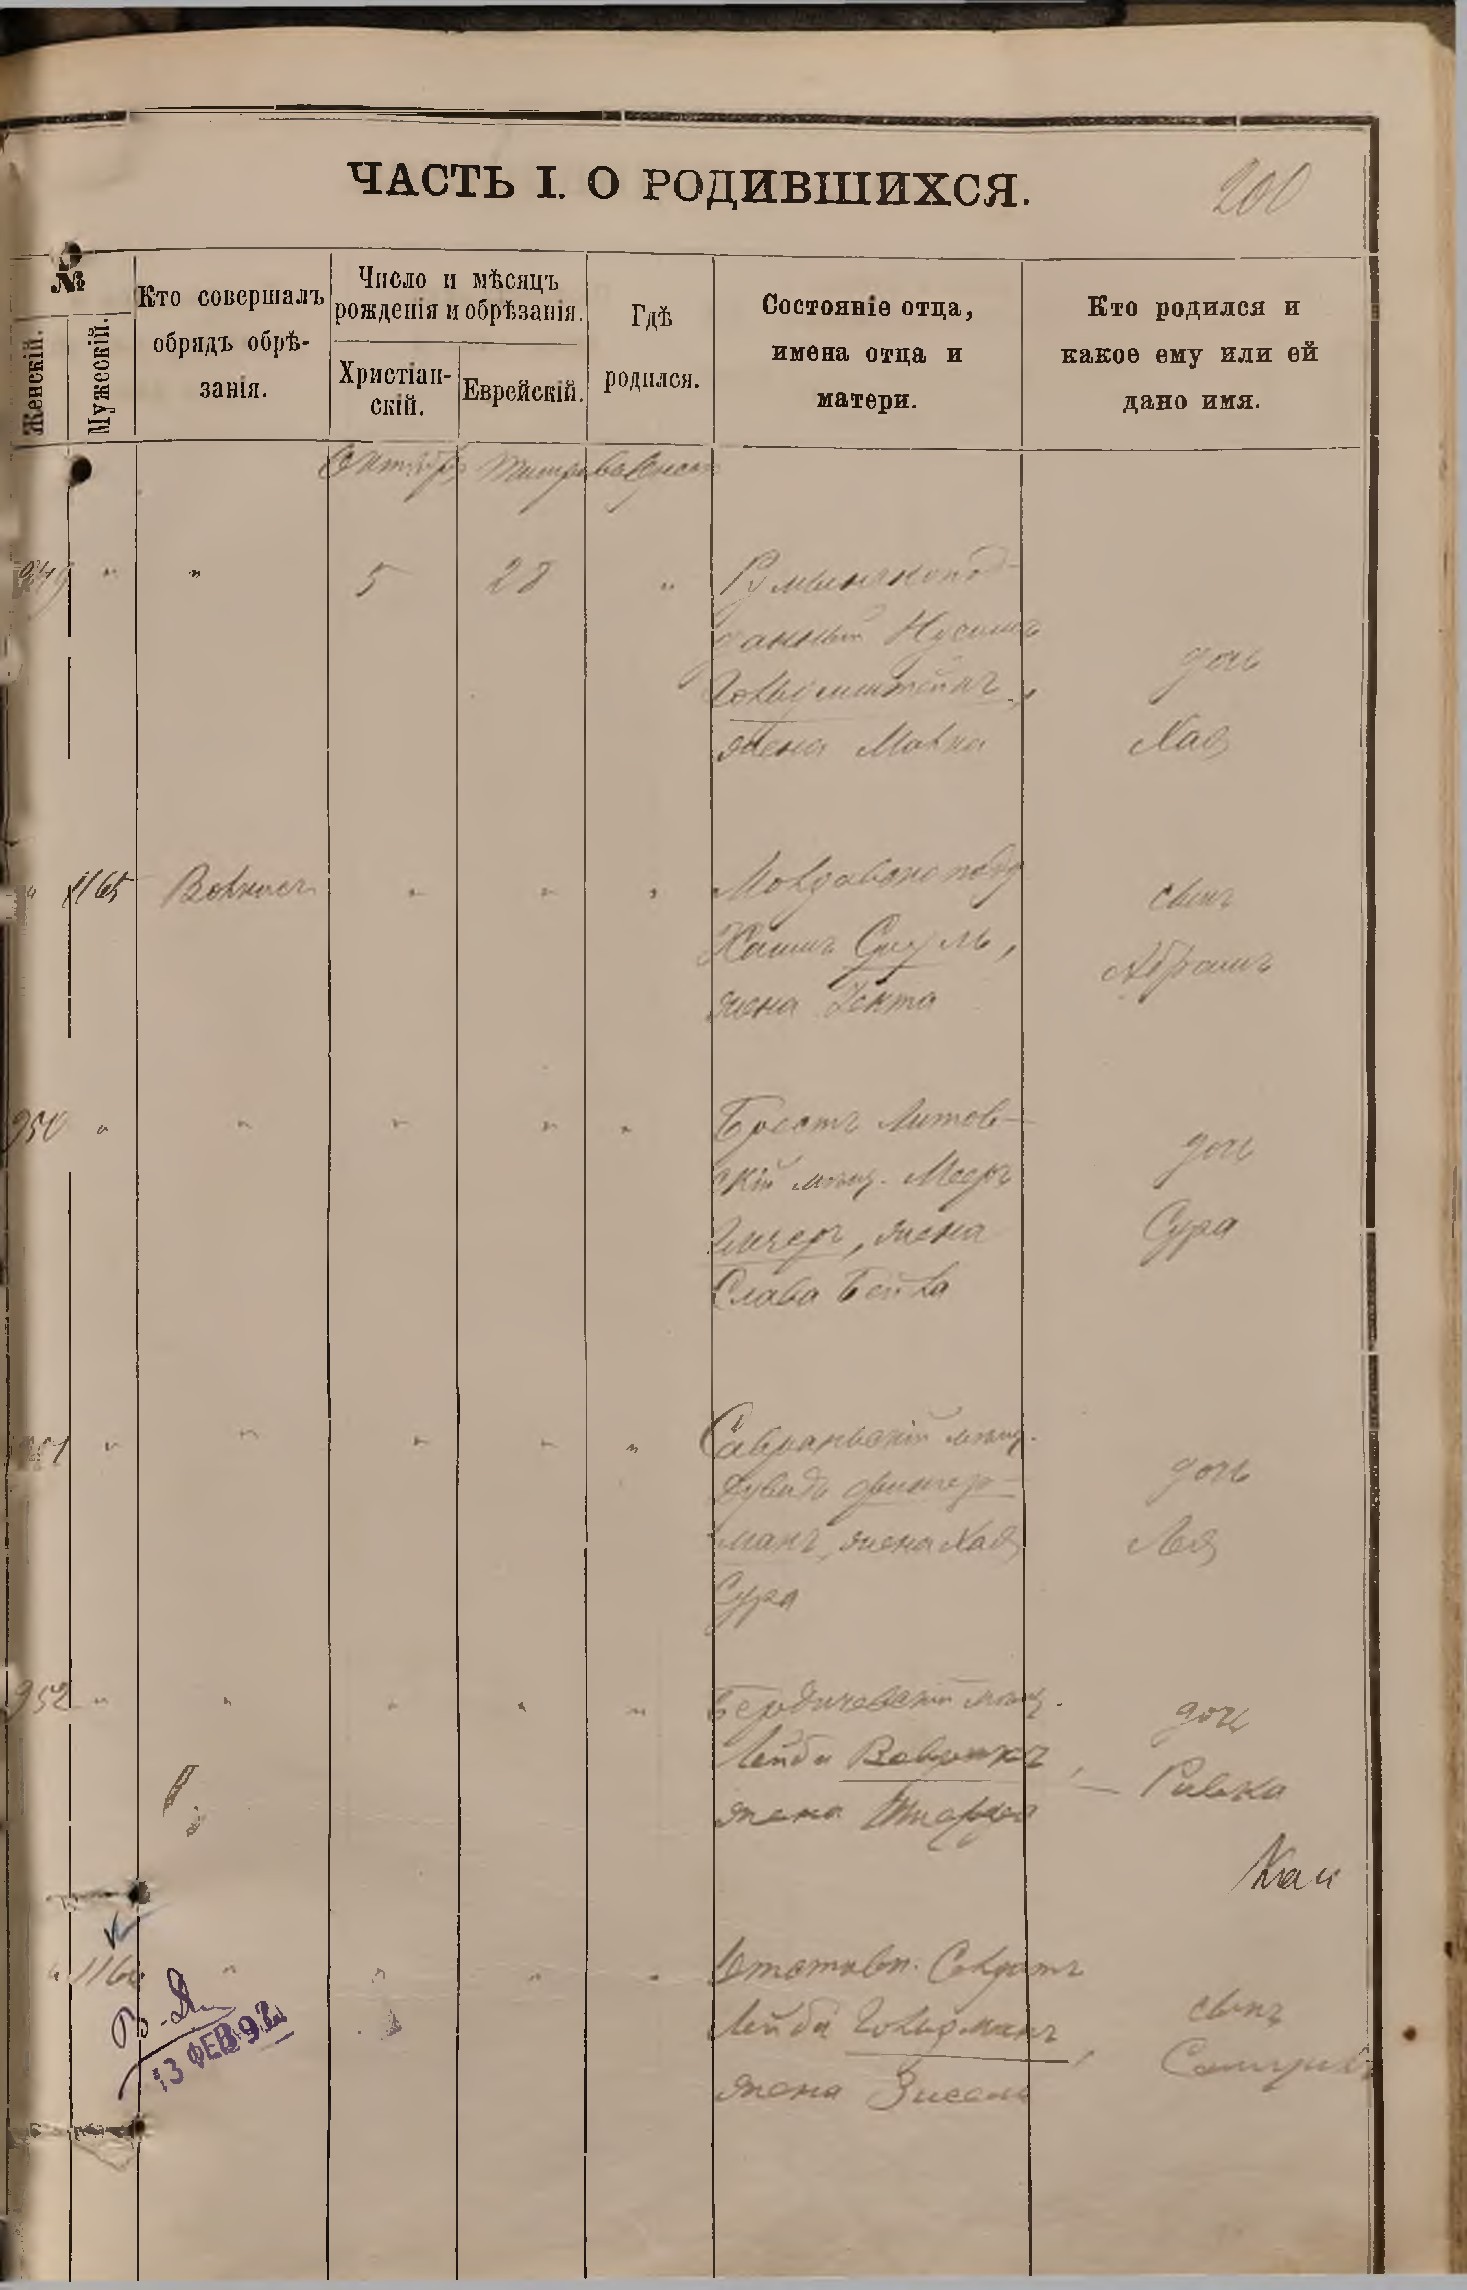 ЧАСТЬ I. О РОДИВШИХСЯ.
200
№
Женскій.
Мужескій.
Кто совершалъ
обрядъ обрѣ-
занія.
Число и мѣсяцъ
рожденія и обрѣзанія.
Христіан-
скій.
Еврейскій.
Гдѣ
родился.
Состояніе отца,
имена отца и
матери.
Кто родился и
какое ему или ей
дано имя.
Октябрь Тишри
949 " " 5 28 " Румынскопод-
данный Нусимъ
Гольденштейнъ,
жена Малка
дочь
Хая
" 1165 Вольмеръ " " " Молдавскоподд
Хаимъ
жена
сынъ
Абрамъ
950 " " " " " Брестъ Литов-
скій мѣщ. Мееръ
жена
Слава Бейла
дочь
Сура
951 " " " " " Савранскій мѣщ.
Дувидъ Фишер-
манъ, жена Хая
Сура
дочь
Лея
952 " " " " " Бердичевскій мѣщ.
Лейба
жена
дочь
Ривка
" 1166 " " " " Отставн. Солдатъ
Лейба Гольдманъ,
жена Зисель
сынъ
13 ФЕВ 92